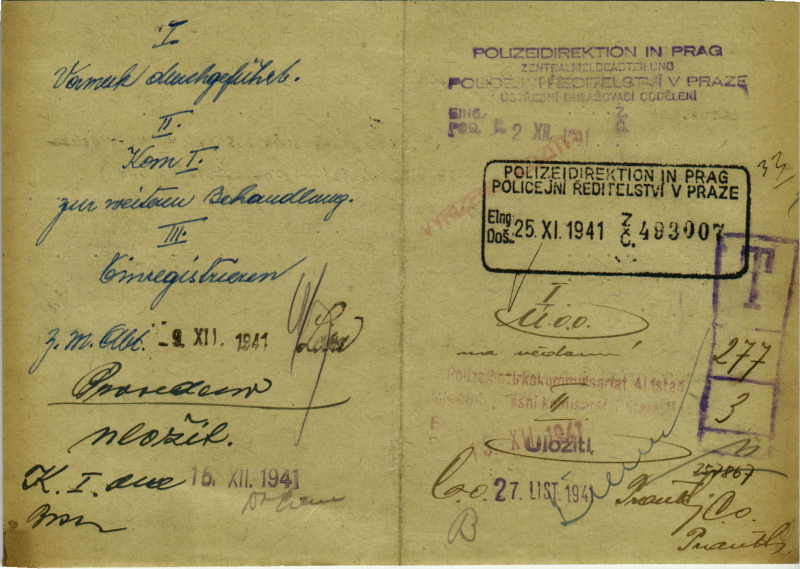 I.
Vormerk durchgeführt.
II.
Kom I.
zur weiteren Behandlung.
III.
Einregistrieren
z. m. Abt. - 9. XII. 1941
Provedeno
uložit.
K. I. dne 16. XII. 1941
POLIZEIDIREKTION IN PRAG
ZENTRALMELDEABTEILUNG
POLICEJNÍ ŘEDITELSTVÍ V PRAZE
ÚSTŘEDNÍ OHLAŠOVACÍ ODDĚLENÍ
EING.
POD.
2 XII. 1941
Z.
Č.
33
POLIZEIDIREKTION IN PRAG
POLICEJNÍ ŘEDITELSTVÍ V PRAZE
Eing.
Doš. 25. XI. 1941
Z.
Č. 493007
T
277
3
I
Ú.o.o.
na vědomí
Polizeibezirkskommissariat Altstadt
II
XII. 1941
Uložiti.
257867
Č.o. 27. LIST. 1941
Č.o.
B